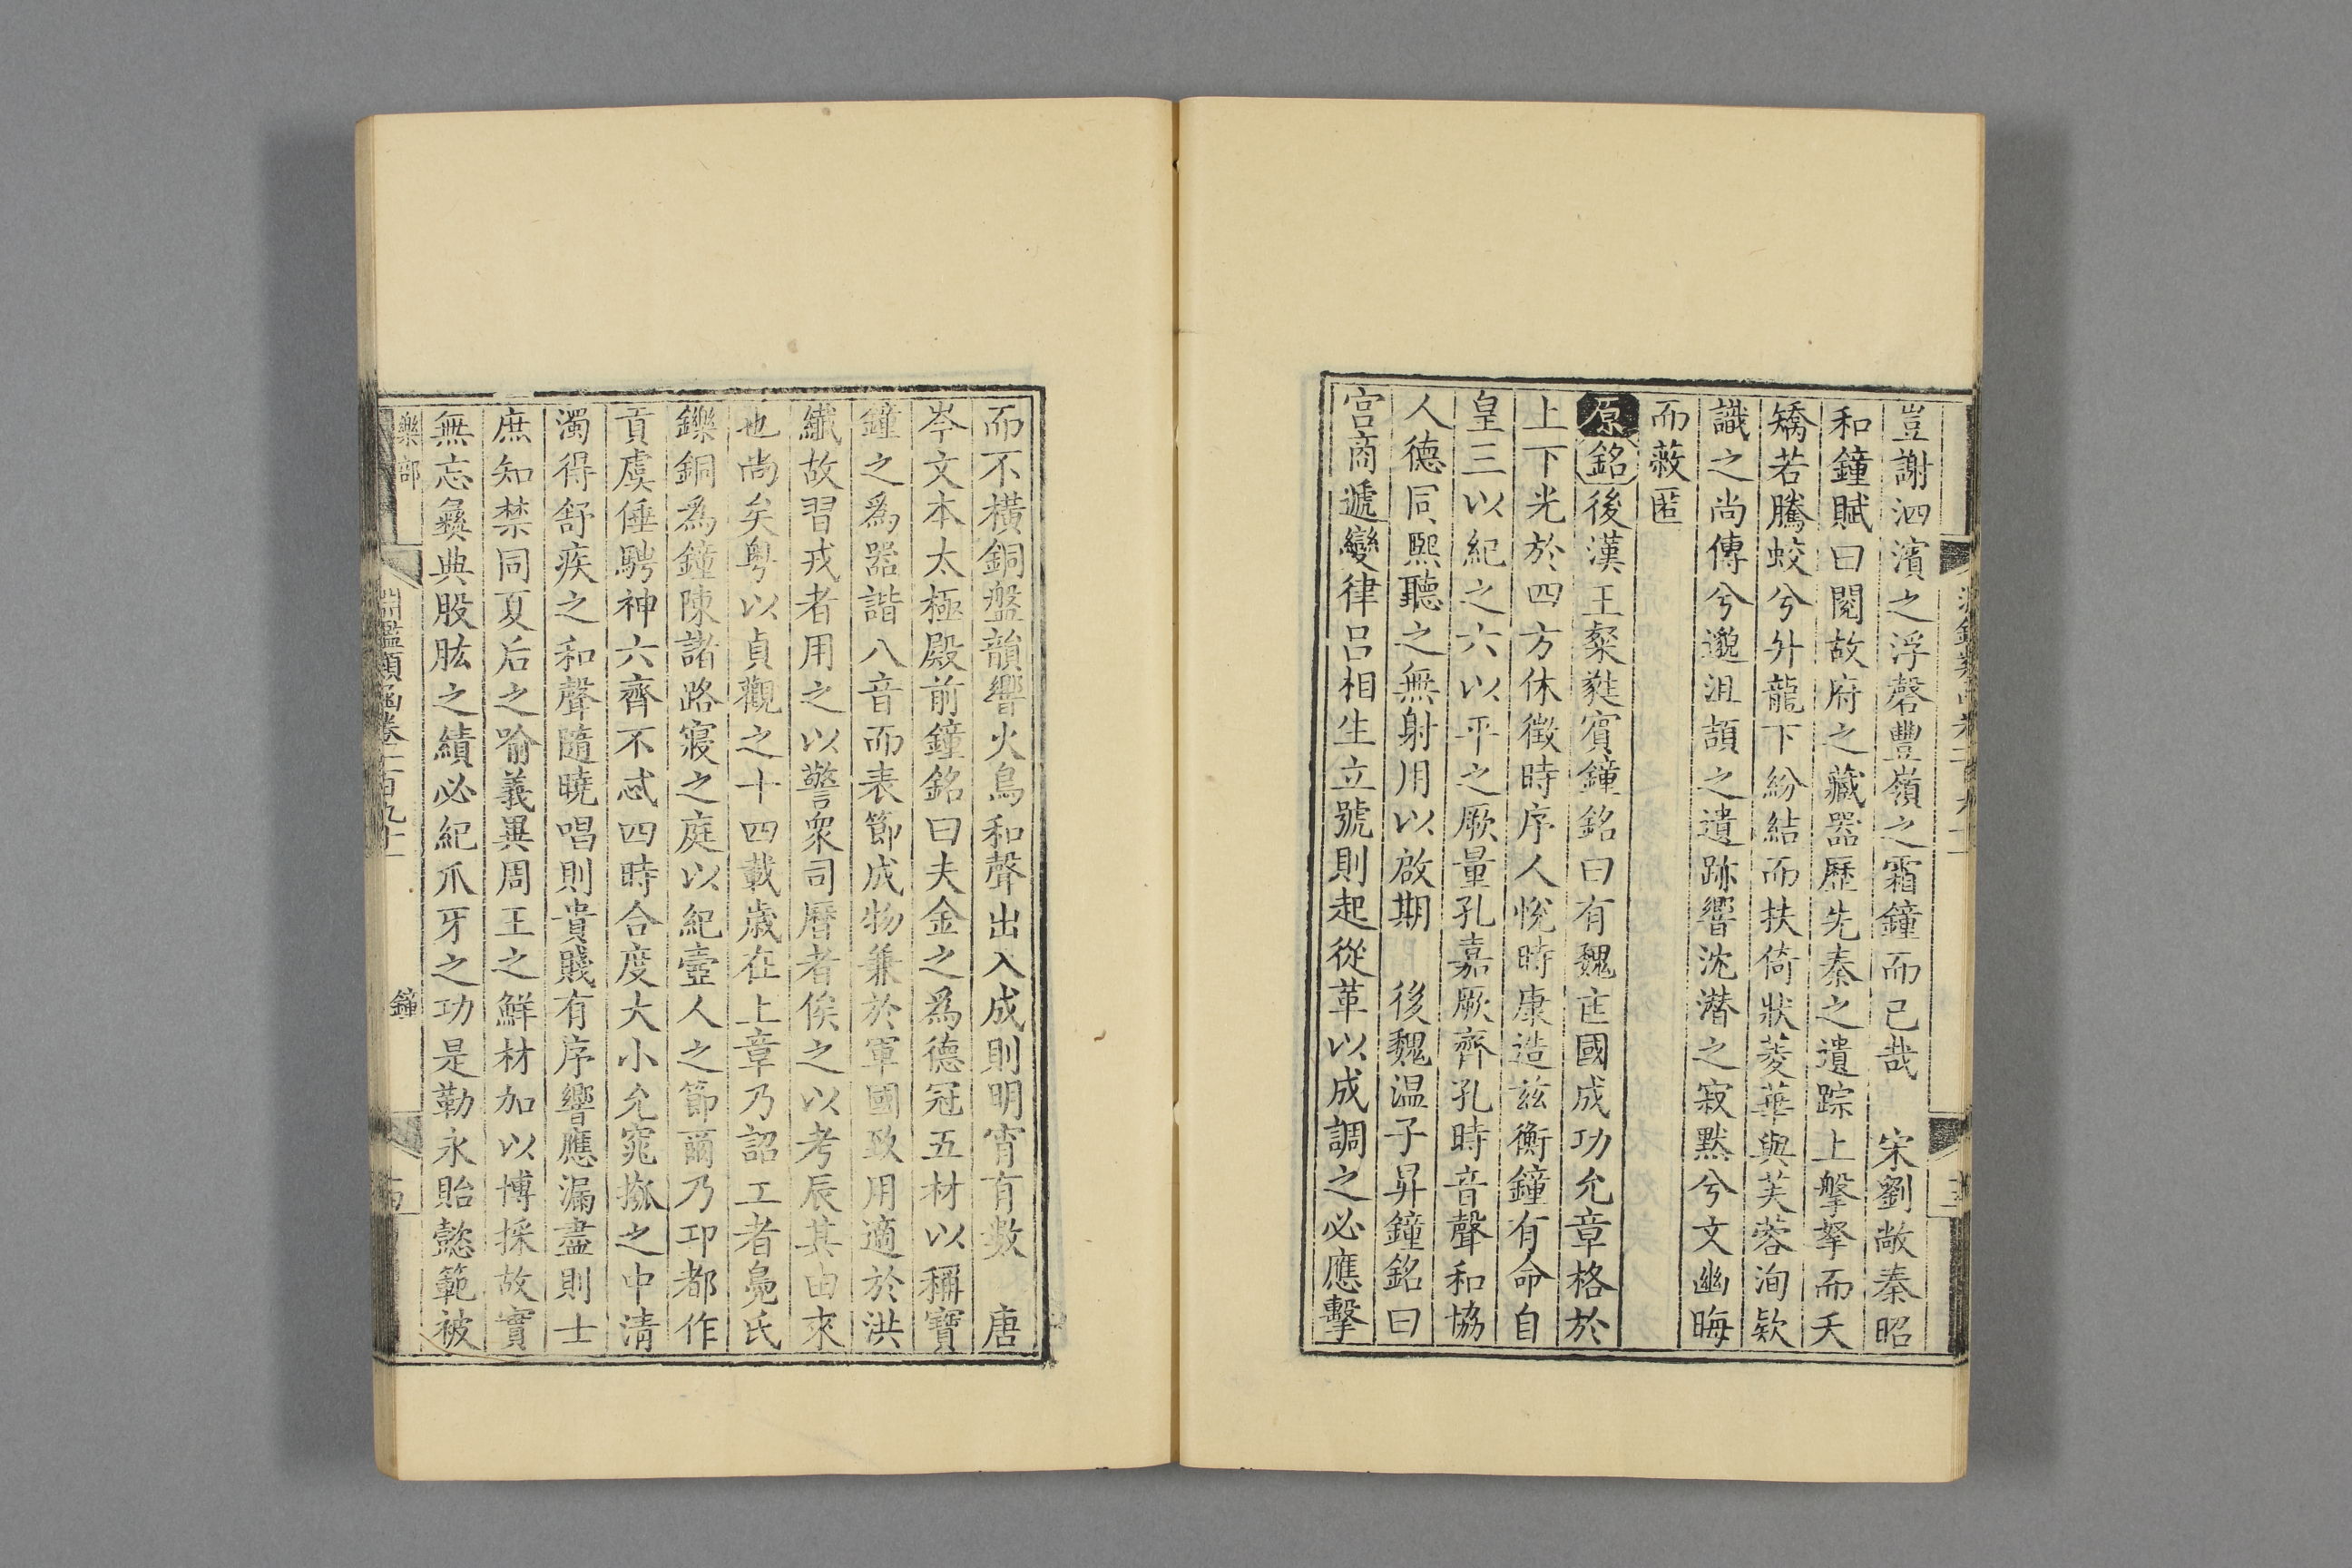 豈謝泗濱之浮磬豐嶺之霜鐘而已哉　宋劉敞秦昭
和鐘賦曰閱故府之藏器歷先秦之遺踪上搫拏而夭
矯若騰蛟兮升龍下紛結而扶倚狀菱華與芙蓉洵欵
識之尚傳兮邈沮頡之遺跡響沈潛之寂默兮文幽晦
而蔽匿
原銘後漢王粲蕤賓鐘銘曰有魏匡國成功允章格於
上下光於四方休徵時序人悅時康造兹衡鐘有命自
皇三以紀之六以平之厥量孔嘉厥齊孔時音聲和協
人德同熙聽之無射用以啟期　後魏温子昇鐘銘曰
宮商遞變律呂相生立號則起從革以成調之必應擊
而不橫銅盤韻響火鳥和聲出入成則明宵有數　唐
岑文本太極殿前鐘銘曰夫金之爲德冠五材以稱寶
鐘之爲器諧八音而表節成物兼於軍國致用適於洪
纎故習戎者用之以警衆司曆者俟之以考辰其由來
也尚矣粤以貞觀之十四載歲在上章乃詔工者鳧氏
鑠銅爲鐘陳諸路寢之庭以紀壼人之節爾乃邛都作
貢虞倕騁神六齊不忒四時合度大小允窕摦之中清
濁得舒疾之和聲隨曉唱則貴賤有序響應漏盡則士
庶知禁同夏后之喻義異周王之鮮材加以博採故實
無忘彝典股肱之績必紀爪牙之功是勒永貽懿範被
樂部
淵鑑類函卷一百九十一
鐘